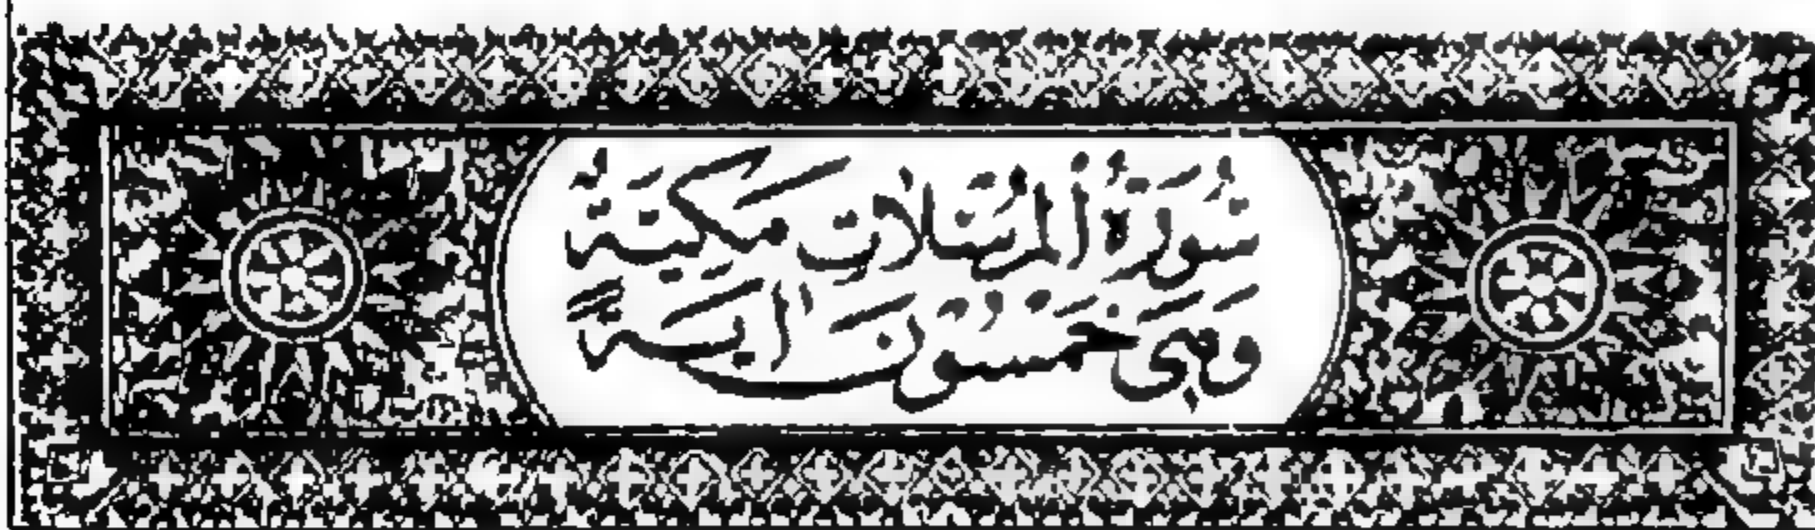 سُورَةُ ٱلْمُرْسَلَاتِ مَكِّيَّةٌ
وَهِيَ خَمْسُونَ ءَايَةً